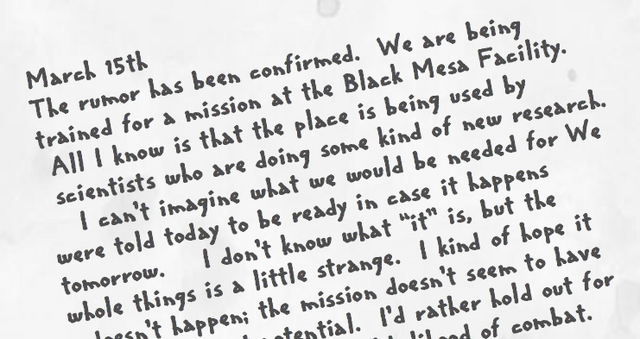 March 15th
The rumor has been confirmed. We are being
trained for a mission at the Black Mesa Facility.
All I know is that the place is being used by
scientists who are doing some kind of new research.
I can't imagine what we would be needed for We
were told today to be ready in case it happens
tomorrow. I don't know what "it" is, but the
whole things is a little strange. I kind of hope it
doesn't happen; the mission doesn't seem to have
I'd rather hold out for
of combat.